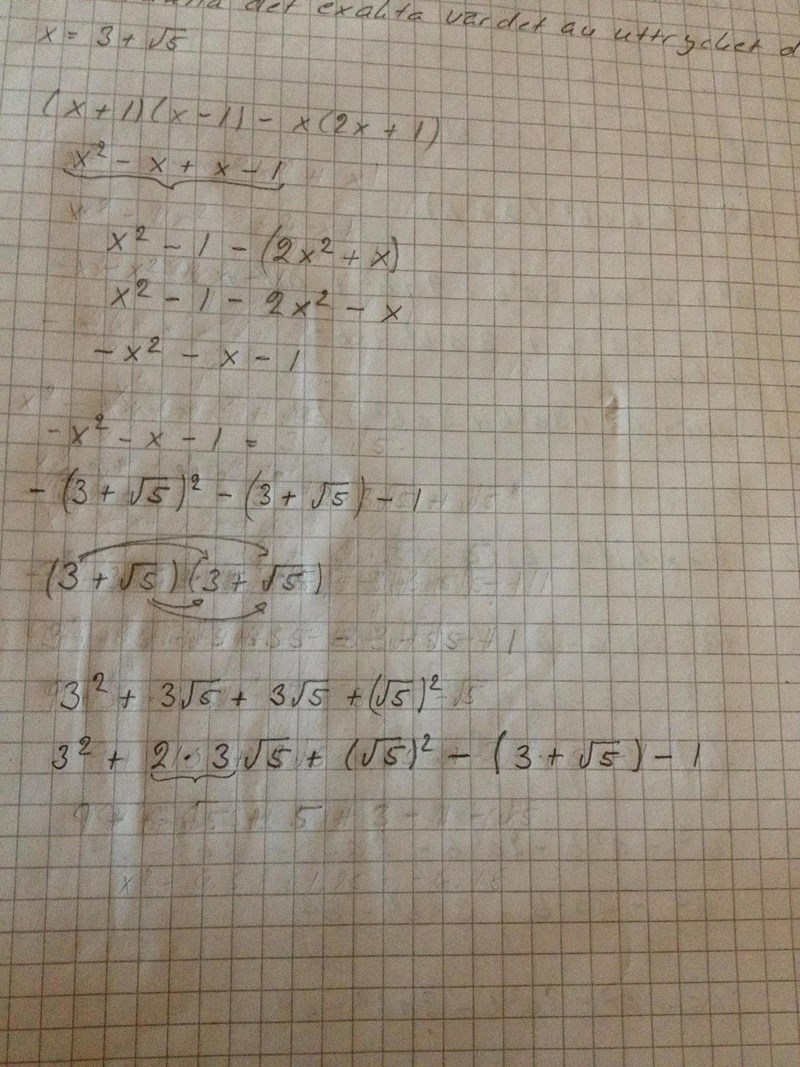 det exakta värdet av uttrycket d
x = 3 + √5
(x + 1)(x - 1) - x(2x + 1)
x² - x + x - 1
x² - 1 - (2x² + x)
x² - 1 - 2x² - x
-x² - x - 1
-x² - x - 1 =
-(3 + √5)² - (3 + √5) - 1
(3 + √5)(3 + √5)
3² + 3√5 + 3√5 + (√5)²
3² + 2 · 3√5 + (√5)² - (3 + √5) - 1